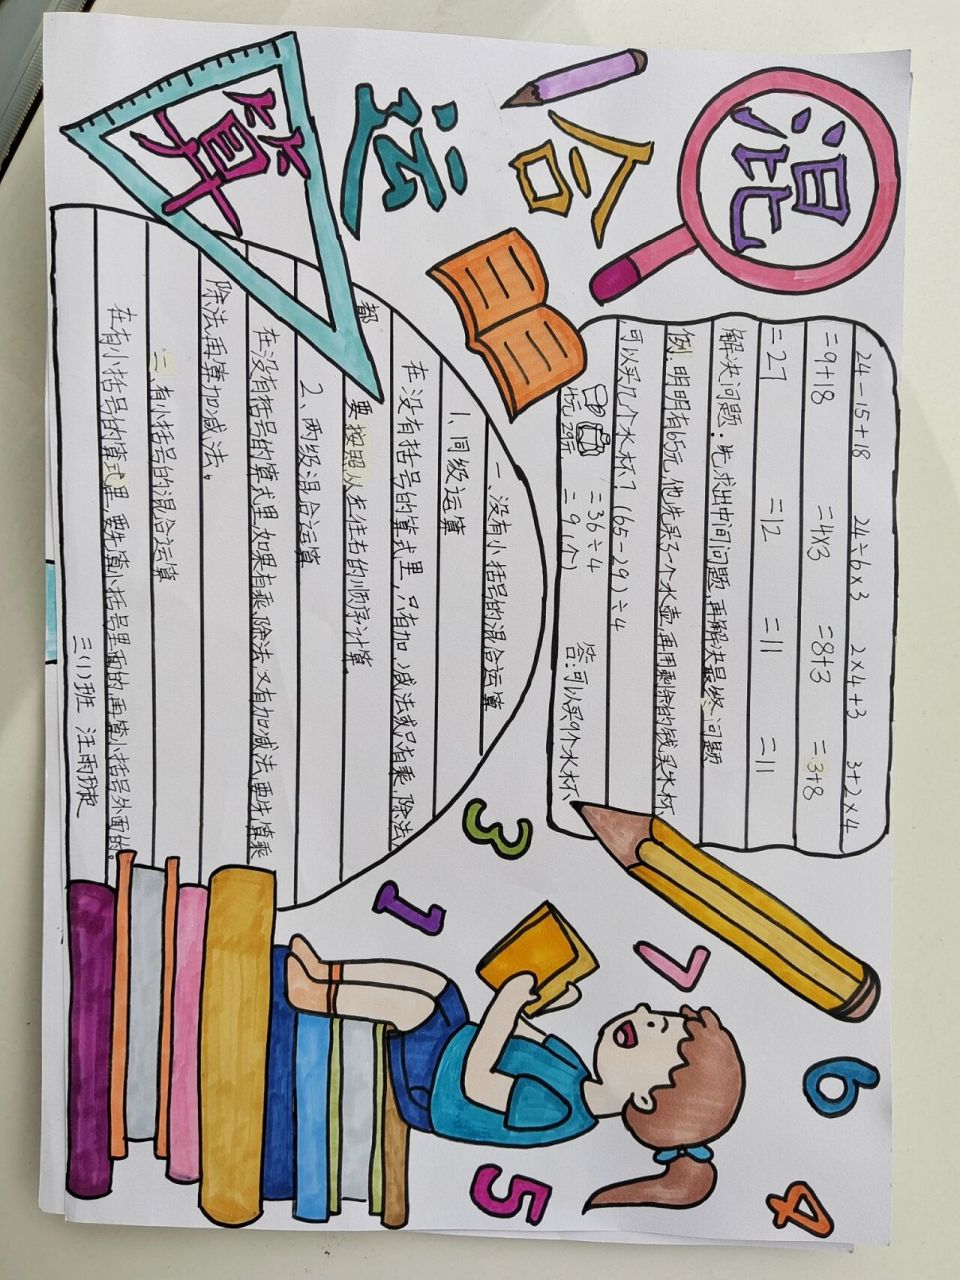 混合运算
24-15+18 24÷6×3 2×4+3 3+2×4
=9+18 =4×3 =8+3 =3+8
=27 =12 =11 =11
解决问题:先求出中间问题,再解决最终问题
例.明明有65元,他先买了一个水壶,再用剩余的钱买水杯,
可以买几个水杯? (65-29)÷4
=36÷4
29元 =9(个) 答:可以买9个水杯、
一、没有小括号的混合运算
1、同级运算
在没有括号的算式里,只有加、减法或只有乘、除法,
都要按照从左往右的顺序计算。
2、两级混合运算
在没有括号的算式里,如果有乘、除法,又有加减法,要先算乘
除法,再算加减法。
二、有小括号的混合运算
在有小括号的算式里,要先算小括号里面的,再算小括号外面的。
三(1)班 汪雨
3
1
7
6
5
4